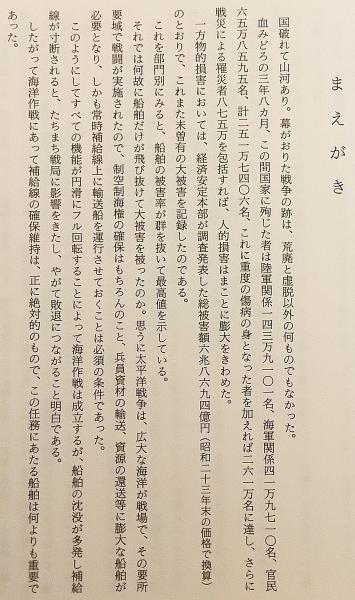 まえがき
国破れて山河あり。幕がおりた戦争の跡は、荒廃と虚脱以外の何ものでもなかった。
血みどろの三年八カ月、この間国家に殉じた者は陸軍関係一四三万九一〇一名、海軍関係四一万九七一〇名、官民
六五万八五九五名、計二五一万七四〇六名、これに重度の傷病の身となった者を加えれば二六一万名に達し、さらに
戦災による罹災者八七五万を包括すれば、人的損害はまことに膨大をきわめた。
一方物的損害においては、経済安定本部が調査発表した総被害額六兆八六九四億円（昭和二十三年末の価格で換算）
のとおりで、これまた未曽有の大被害を記録したのである。
これを部門別にみると、船舶の被害率が群を抜いて最高値を示している。
それでは何故に船舶だけが飛び抜けて大被害を被ったのか。思うに太平洋戦争は、広大な海洋が戦場で、その要所
要域で戦闘が実施されたので、制空制海権の確保はもちろんのこと、兵員資材の輸送、資源の還送等に膨大な船舶が
必要となり、しかも常時補給線上に輸送船を運行させておくことは必須の条件であった。
このようにしてすべての機能が円滑にフル回転することによって海洋作戦は成立するが、船舶の沈没が多発し補給
線が寸断されると、たちまち戦局に影響をきたし、やがて敗退につながること明白である。
したがって海洋作戦にあって補給線の確保維持は、正に絶対的のもので、この任務にあたる船舶は何よりも重要で
あった。